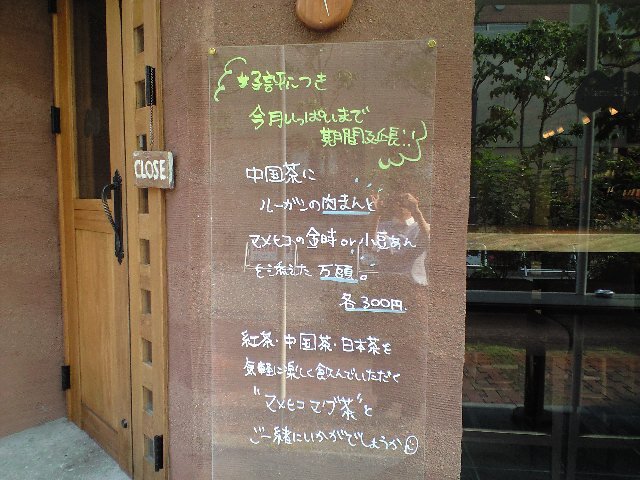 CLOSE
好評につき
今月いっぱいまで
期間延長!!
中国茶に
ルーガンの肉まんと
マメヒコの金時or小豆あん
を添えた万頭。
各300円
紅茶・中国茶・日本茶を
気軽に楽しく飲んでいただく
"マメヒコマグ茶"と
ご一緒にいかがでしょうか